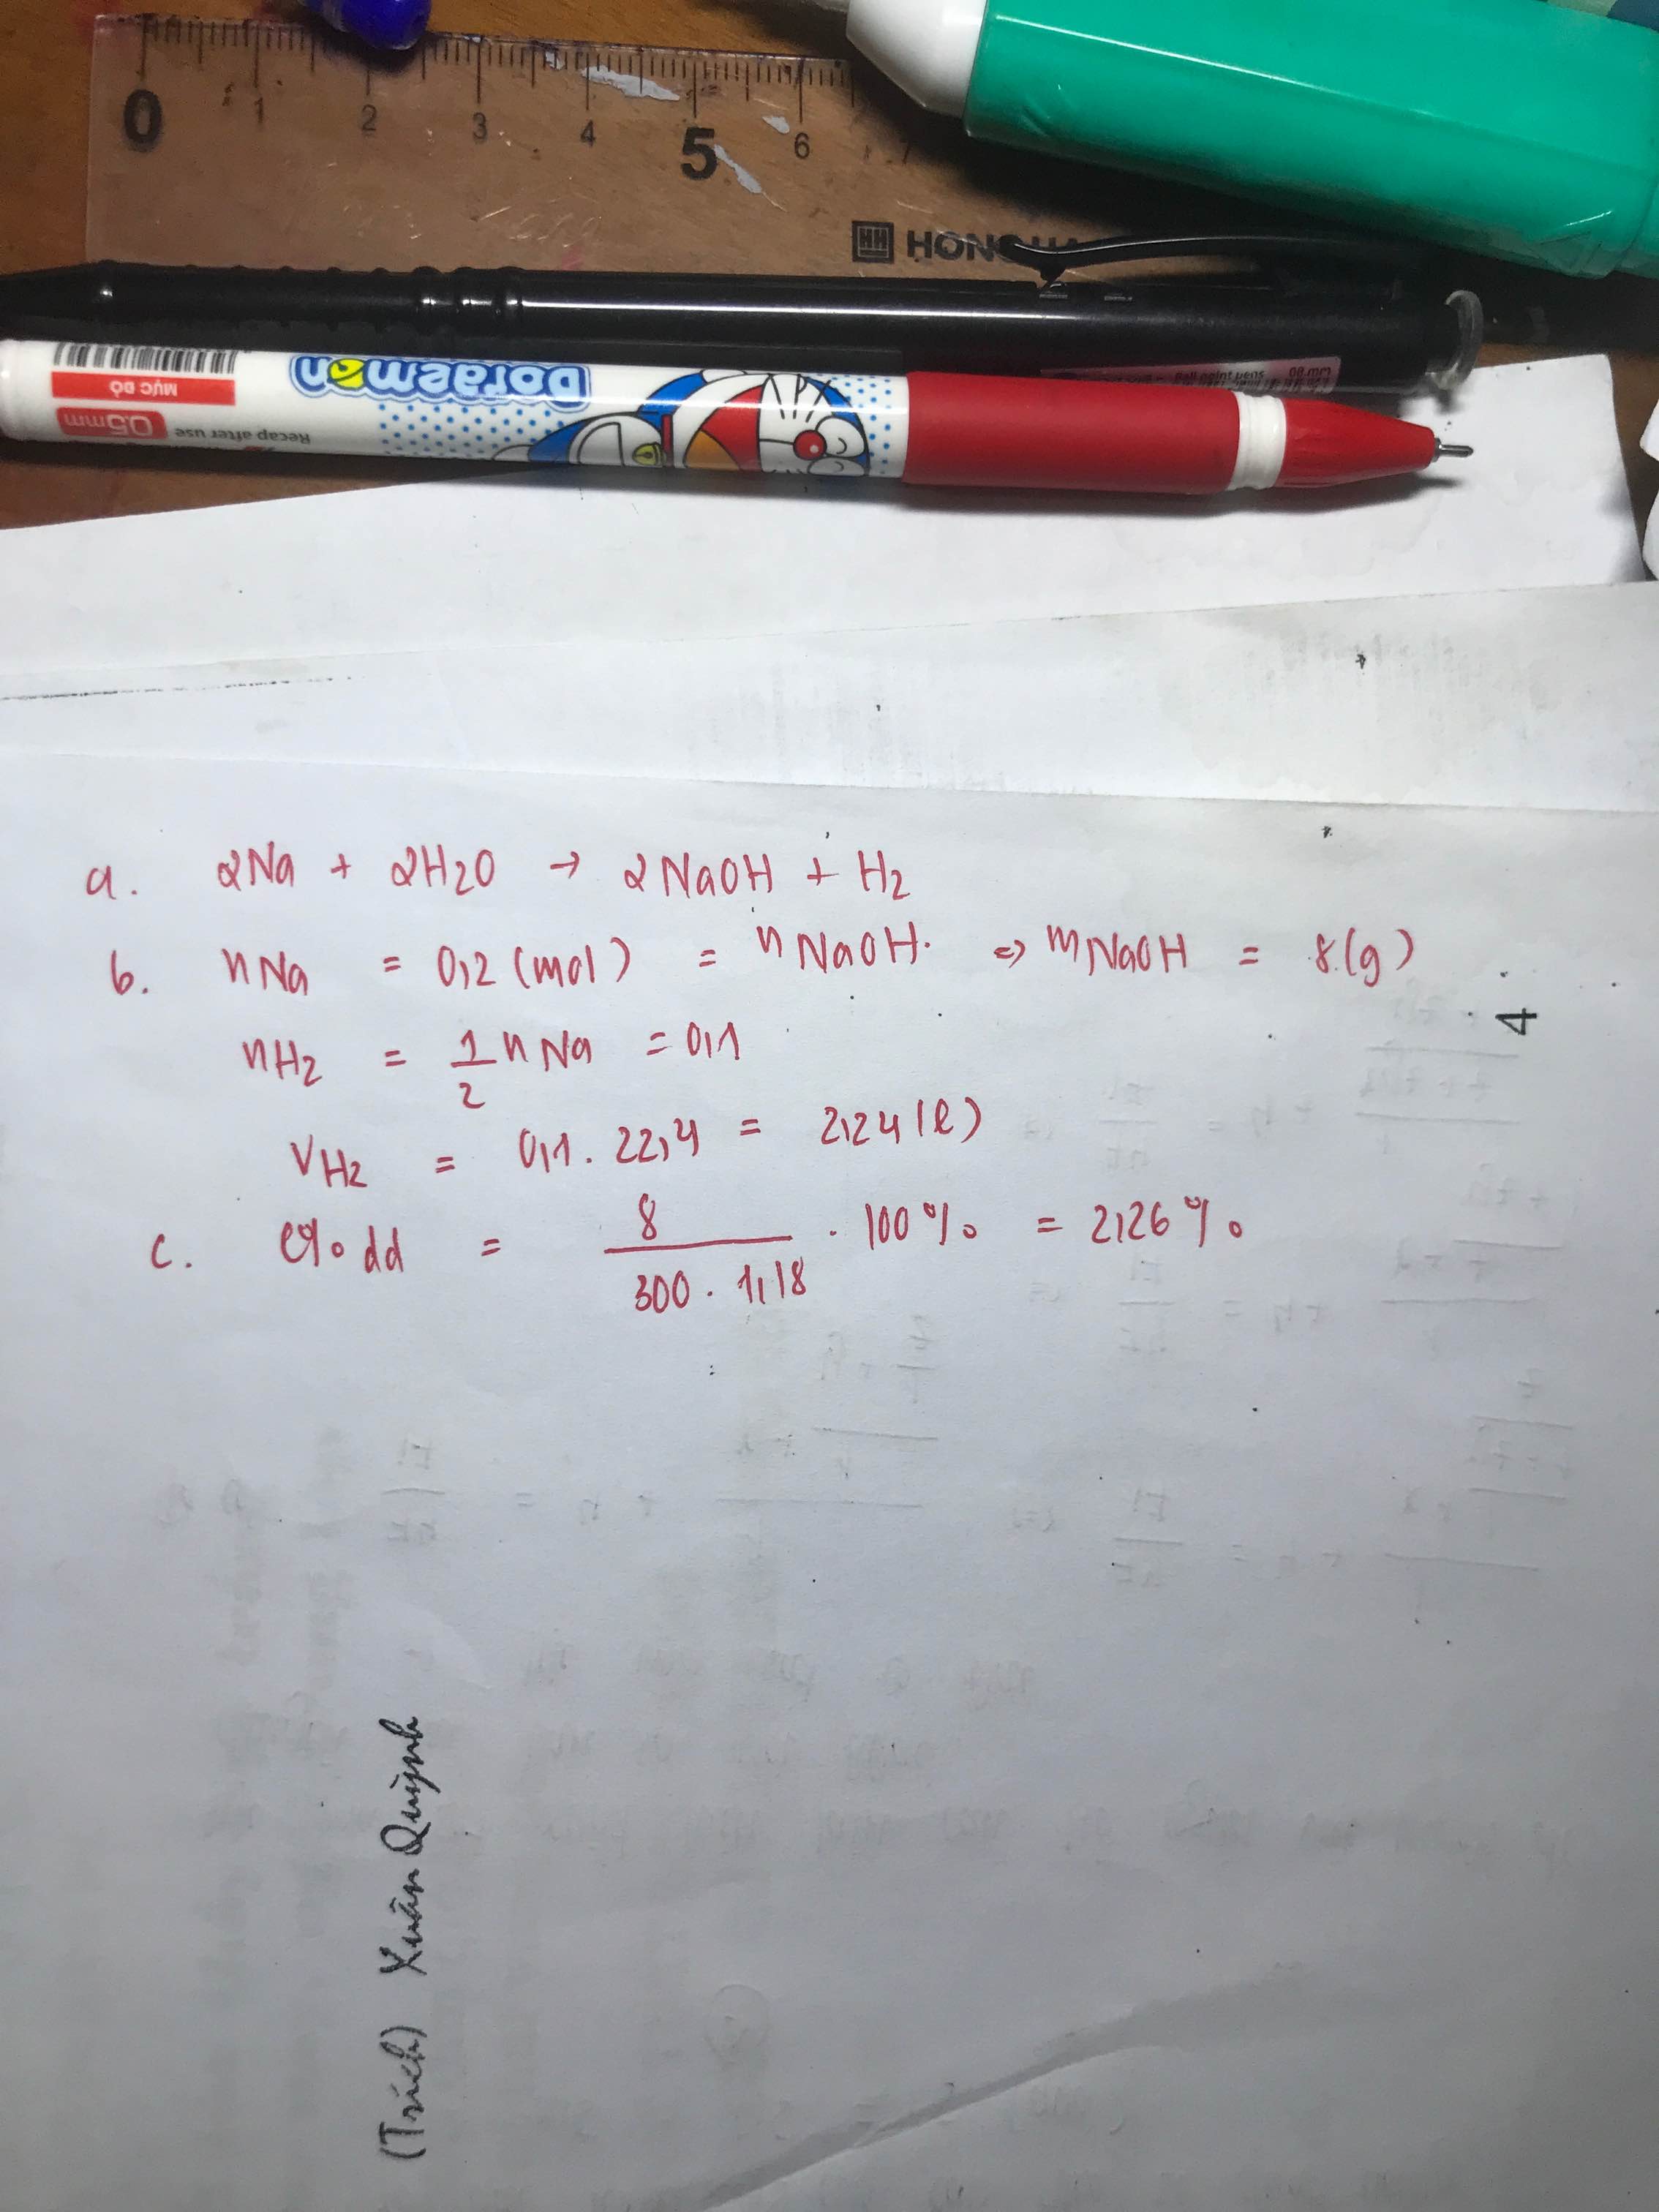 0 1 2 3 4 5 6 7
HH HONG HA
Ball point pens 08 mm
Doraemon
MỰC ĐỎ
0.5mm Recap after use
a. 2Na + 2H2O → 2NaOH + H2
b. nNa = 0,2 (mol) = nNaOH. => mNaOH = 8(g)
nH2 = 1/2 nNa = 0,1
VH2 = 0,1. 22,4 = 2,24(l)
c. C% dd = 8/(300 . 1,18) . 100% = 2,26%
4
(Trích) Xuân Quỳnh